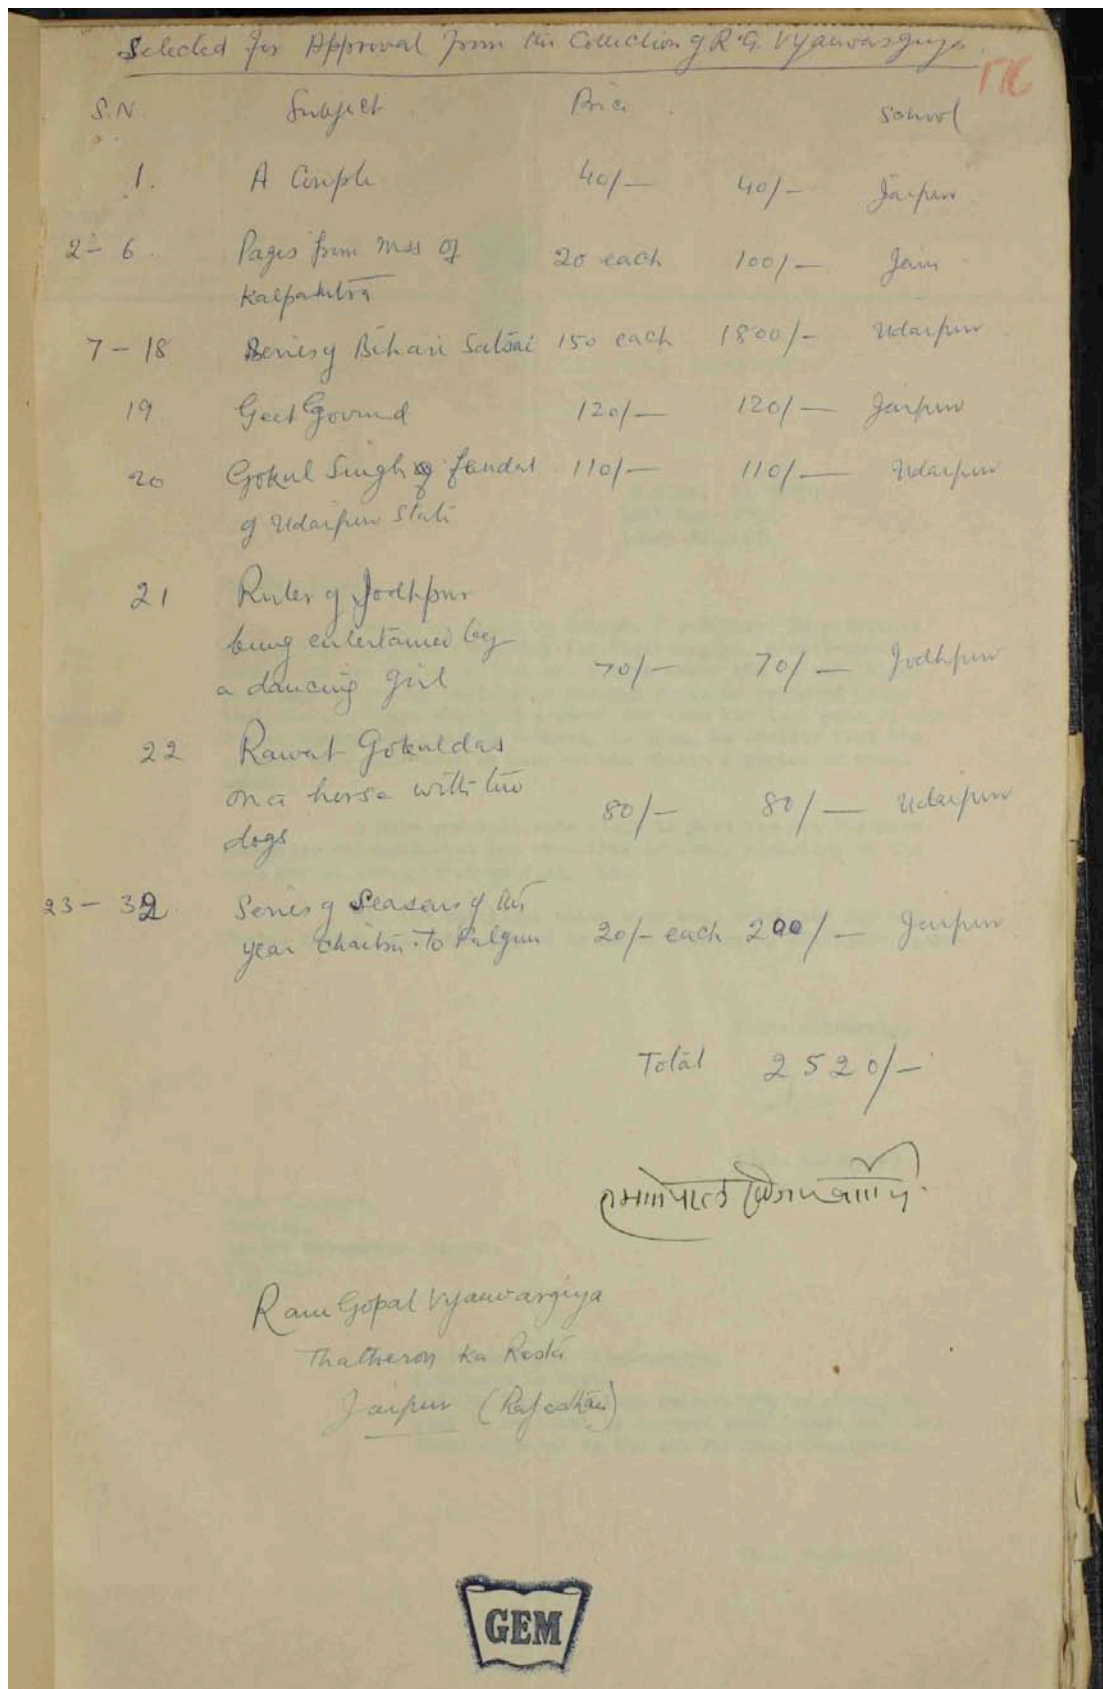 Selected for Approval from the Collection of R.G. Vyauvasguya
176
S.N. Subject Price School
1. A Couple 40/— 40/— Jaipur
2–6. Pages from Mss of 20 each 100/— Jain
Kalpasutra
7–18 Series of Bihari Satsai 150 each 1800/— Udaipur
19. Geet Govind 120/— 120/— Jaipur
20 Gokul Singh of feudal 110/— 110/— Udaipur
of Udaipur State
21 Ruler of Jodhpur
being entertained by
a dancing girl 70/— 70/— Jodhpur
22 Rawat Gokuldas
on a horse with two 80/— 80/— Udaipur
dogs
23–32. Series of Seasons of the
year Chaitra to Falgun 20/– each 200/— Jaipur
Total 2520/—
रामगोपाल
Ram Gopal Vyauvargiya
Thatheron Ka Rasta
Jaipur (Rajasthan)
GEM